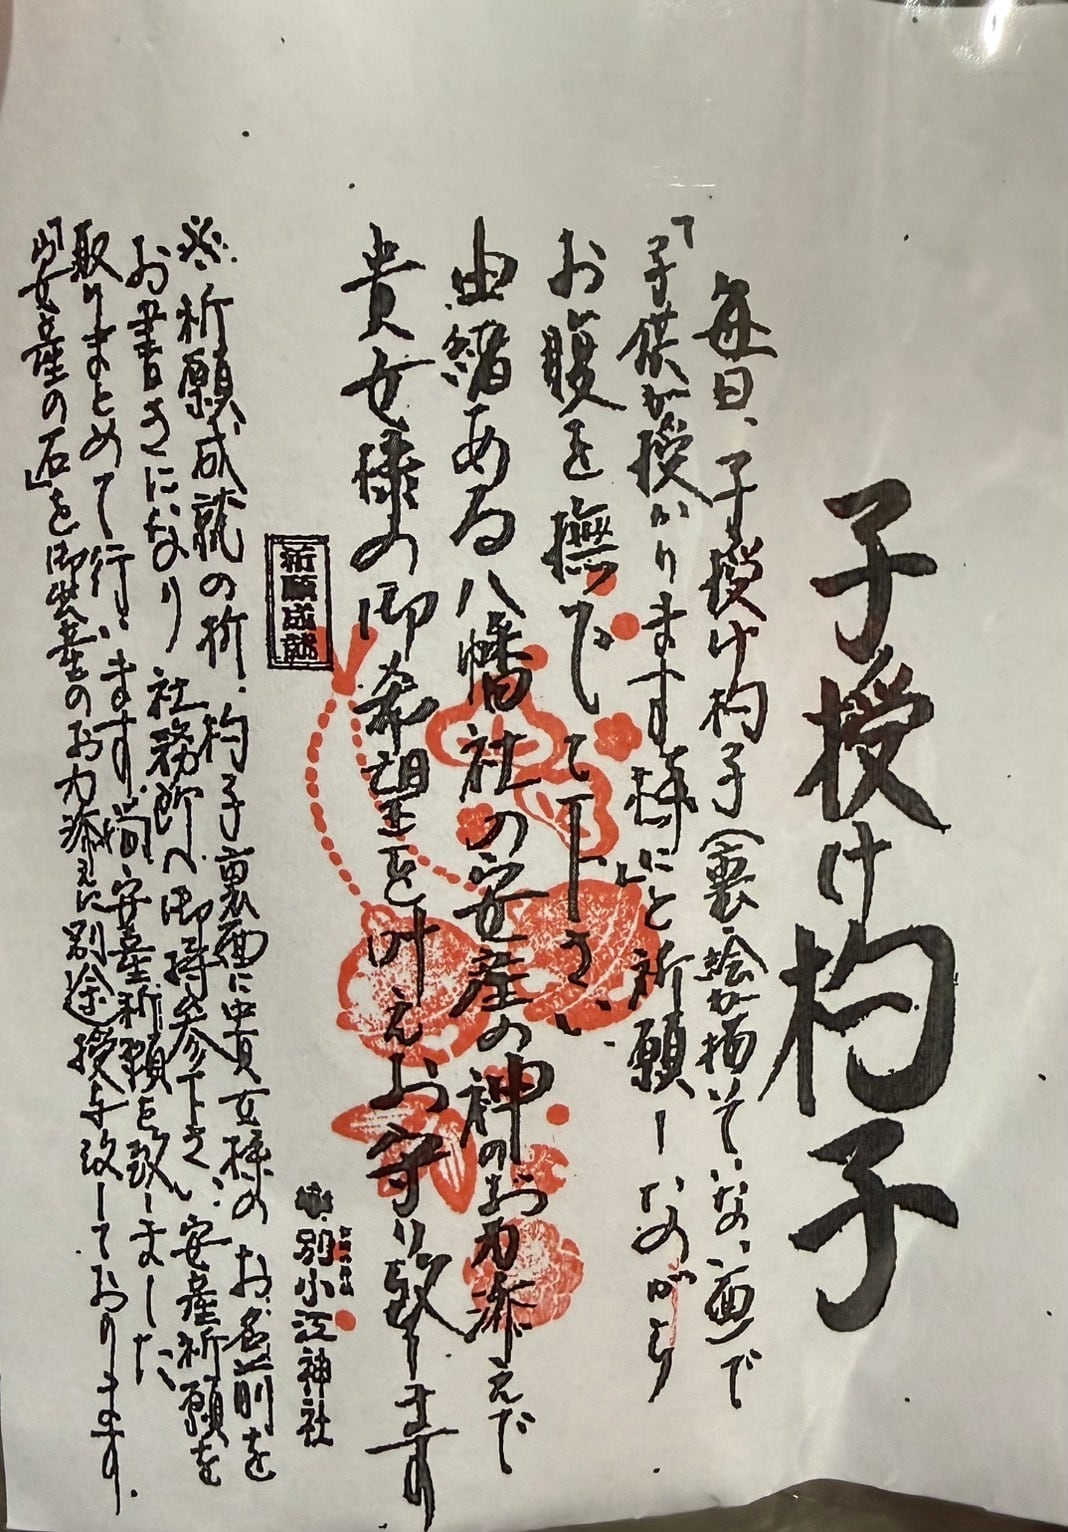 子授け杓子
毎日、子授け杓子（裏・絵が描いていない面）で
「子供が授かります様に」と祈願しながら
お腹を撫でて下さい
由緒ある八幡社の安産の神のお力添えで
貴女様の御希望を叶えお守り致します
祈願成就
別小江神社
※祈願成就の折、杓子裏面に貴女様のお名前を
お書きになり社務所へ御持参下さい安産祈願を
取りまとめて行います。尚、安産祈願を致しました
「安産の石」を御出産のお力添えに別途授与致しております。